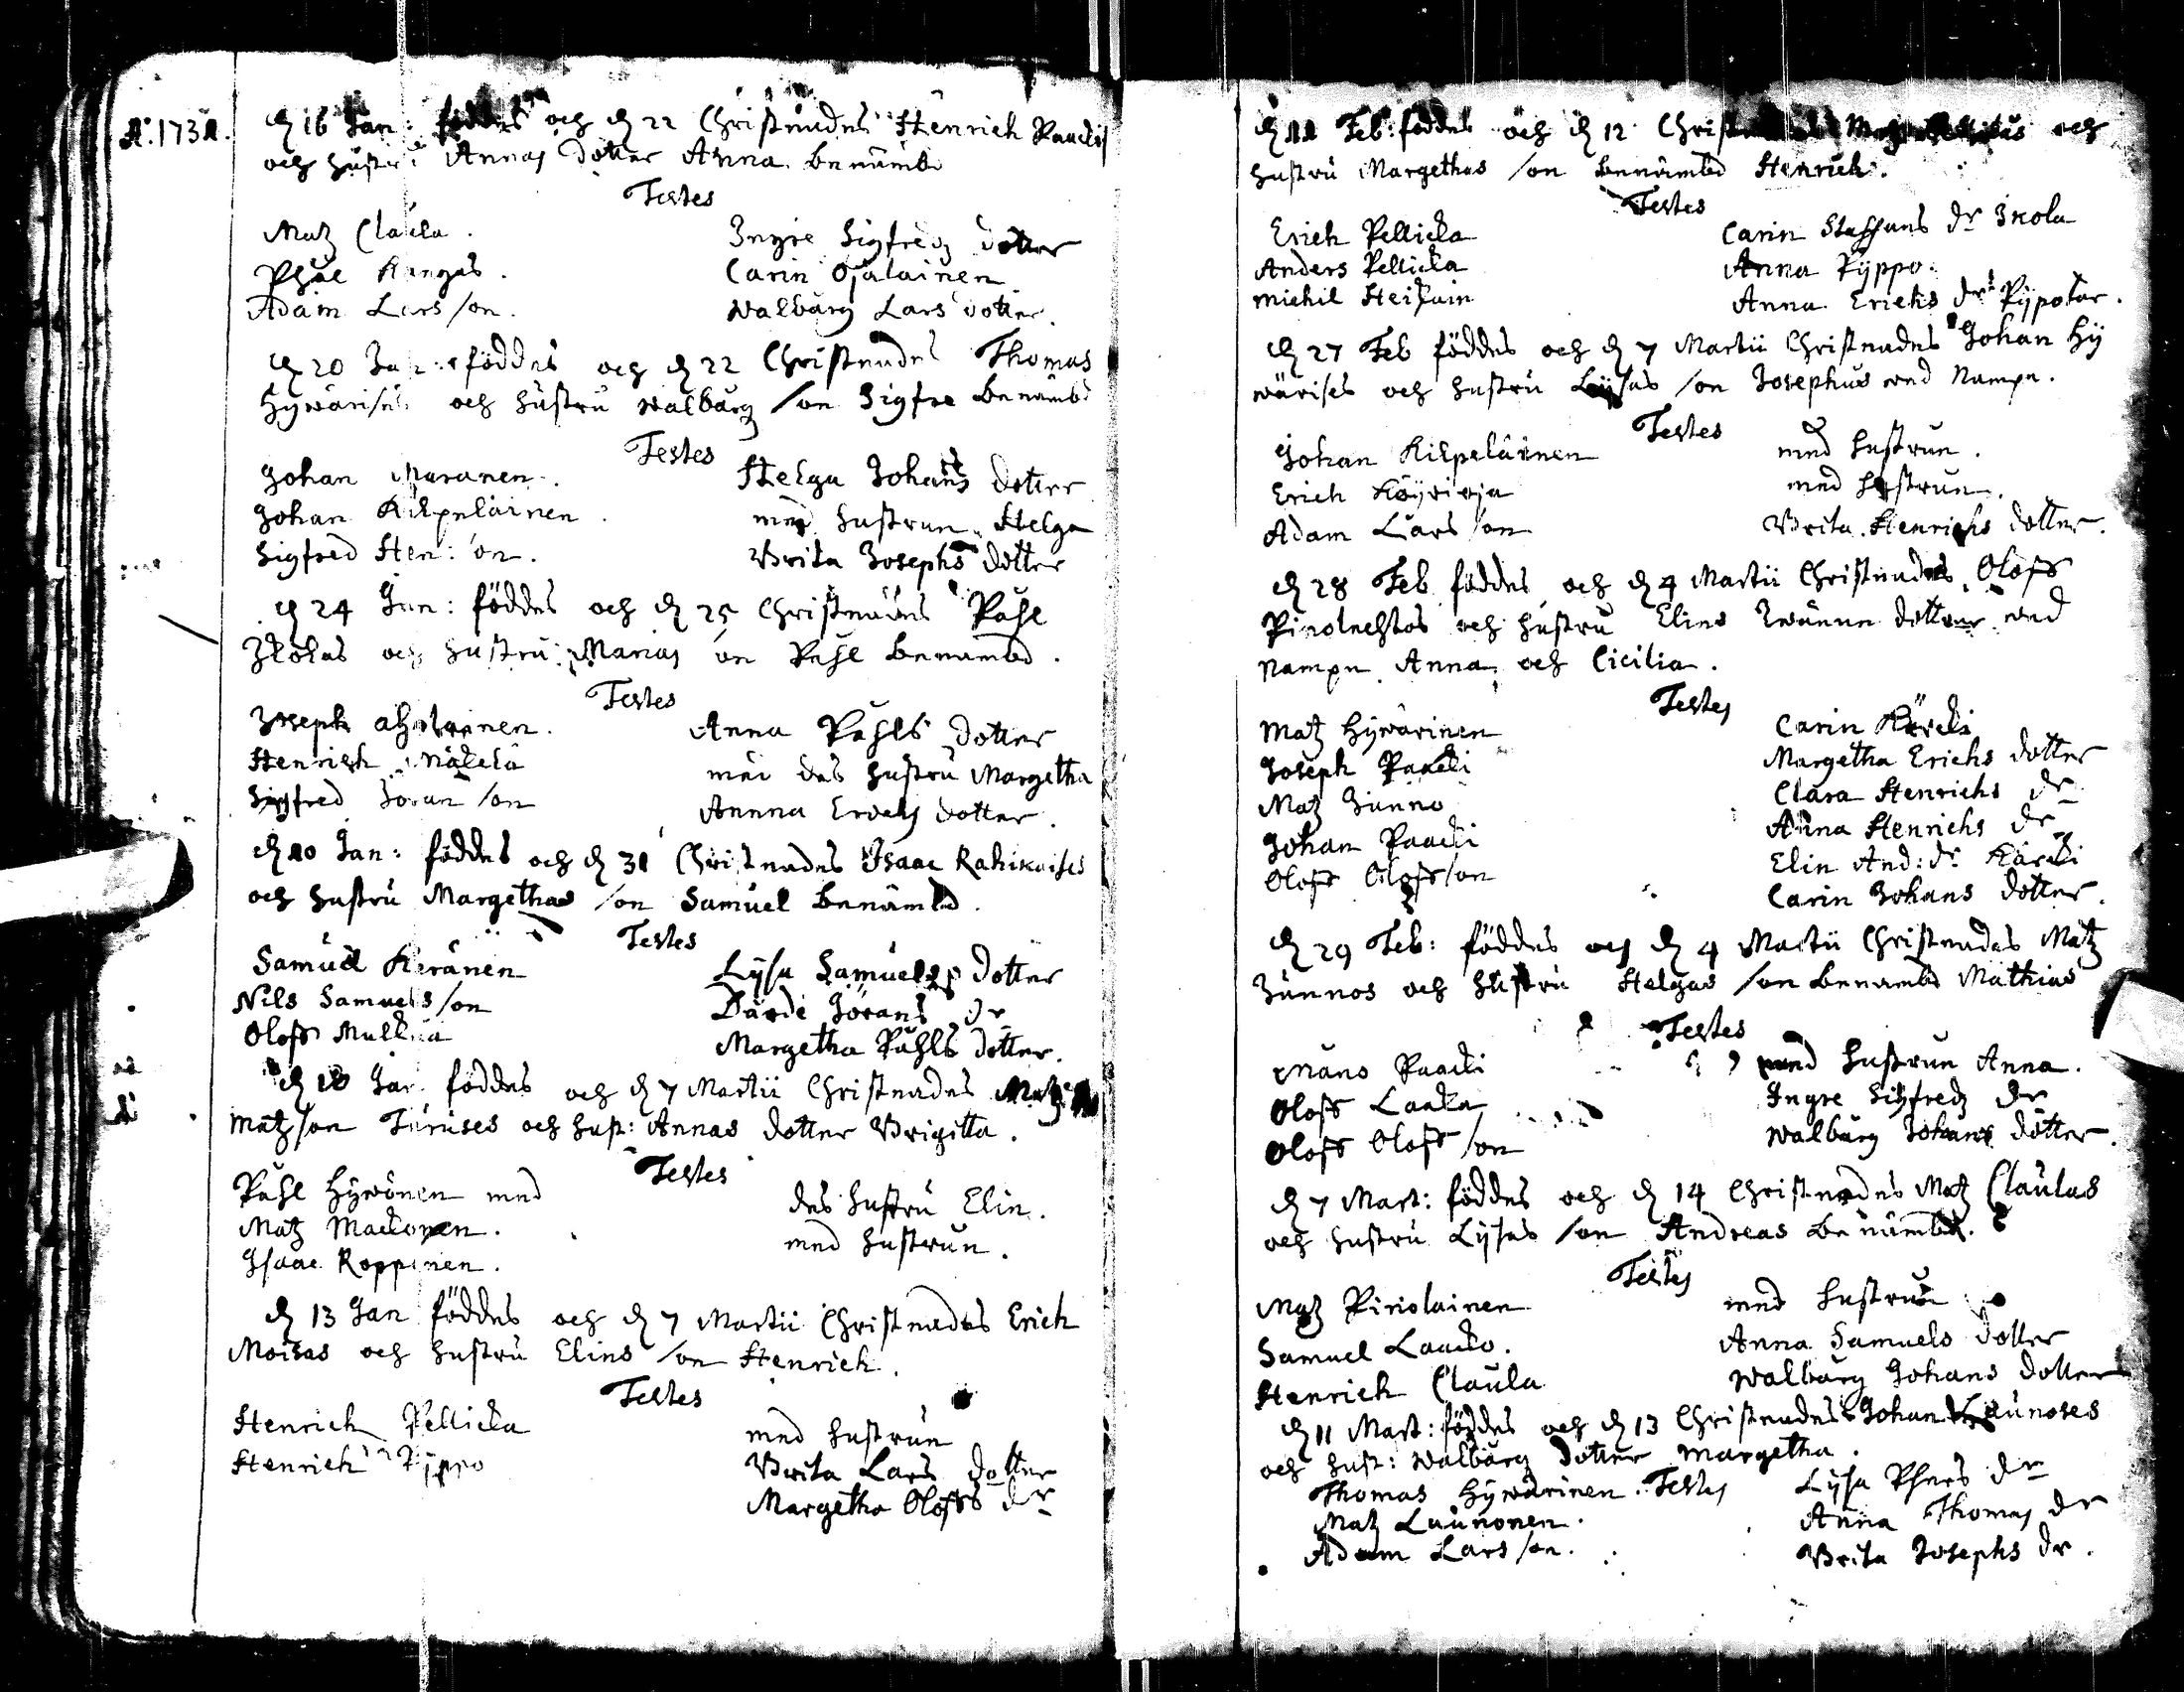 Ao. 1732.
d 16 Jan: föddes och d 22 Christnades Henrich Paackis
och hustru Annas dotter Anna benämbd
Testes
Matz Claula. Ingre Sigfredz dotter
Påhl Kangas. Carin Ojalainen
Adam Lars son. Walburg Lars dotter.
d 20 Jan: föddes och d 22 Christnades Thomas
Hywärises och hustru Walburg son Sigfre benämbd
Testes
Johan Muranen. Helga Johans dotter
Johan Kilpeläinen. med hustrun Helga
Sigfred Hen: son. Brita Josephs dotter
d 24 Jan: föddes och d 25 Christnades Påhl
Ikolas och hustru Marias son Påhl benämbd.
Testes
Joseph Anna Påhls dotter
Henrich Mäkelä med des hustru Margetha
Sigfred Joran son Annna dotter.
d Jan: föddes och d 31 Christnades Isaac Rahikaises
och hustru Margethas son Samuel benämbd.
Testes
Samuel Keränen Lysa Samuels dotter
Nils Samuels son Dårdi Jörans dr
Oloff Mulkia Margetha Påhls dotter.
d Jan föddes och d 7 Martii Christnades Matz
Matz son Turuses och hust: Annas dotter Brigitta.
Testes
Påhl Hywönen med des hustru Elin.
Matz Mackonen. med hustrun.
Isaac Roppinen.
d 13 Jan föddes och d 7 Martii Christnades Erich
Moisas och hustru Elins son Henrich.
Testes
Henrich Pellicka med hustrun
Henrich Pyppo Brita Lars dotter
Margetha Oloffs dr
d 11 Feb: föddes och d 12 och
hustru Margethas son benämbd Henrich.
Testes
Erich Pellicka Carin Staffans dr Ikola
Anders Pellicka Anna Pyppo.
Michil Heikain Anna Erichs dr Pypotar.
d 27 Feb föddes och d 7 Martii Christnades Johan Hy
wärises och hustru Lysas son Josephus wed Nampn.
Testes
Johan Kilpeläinen med hustrun.
Erich med hustrun.
Adam Lars son Brita Henrichs dotter.
d 28 Feb föddes och d 4 Martii Christnades Oloff
och hustru Elins dotter wed
Nampn Anna och Cicilia.
Testes
Matz Hywärinen Carin Kärcki
Joseph Paacki Margetha Erichs dotter
Matz Junno Clara Henrichs dr
Johan Paacki Anna Henrichs dr
Oloff Oloff son Elin And: dr Kärcki
Carin Johans dotter.
d 29 Feb: föddes och d 4 Martii Christnades Matz
Junnos och hustru Helgas son benämbd Mathias
Testes
Måns Paacki med hustrun Anna.
Oloff Laacka Ingre Sigfredz dr
Oloff Oloff son Walburg Johans dotter.
d 7 Mart: föddes och d 14 Christnades Matz Claulas
och hustru Lysas son Andreas benämbd.
Testes
Matz Piriolainen med hustrun
Samuel Laacko. Anna Samuels dotter
Henrich Claula Walburg Johans dotter
d 11 Mart: föddes och d 13 Christnades Johan Launoses
och hust: Walburg dotter Margetha.
Thomas Hywärinen. Testes Lysa Phers dr
Matz Launonen. Anna Thomas dr
Adam Lars son. Brita Josephs dr.